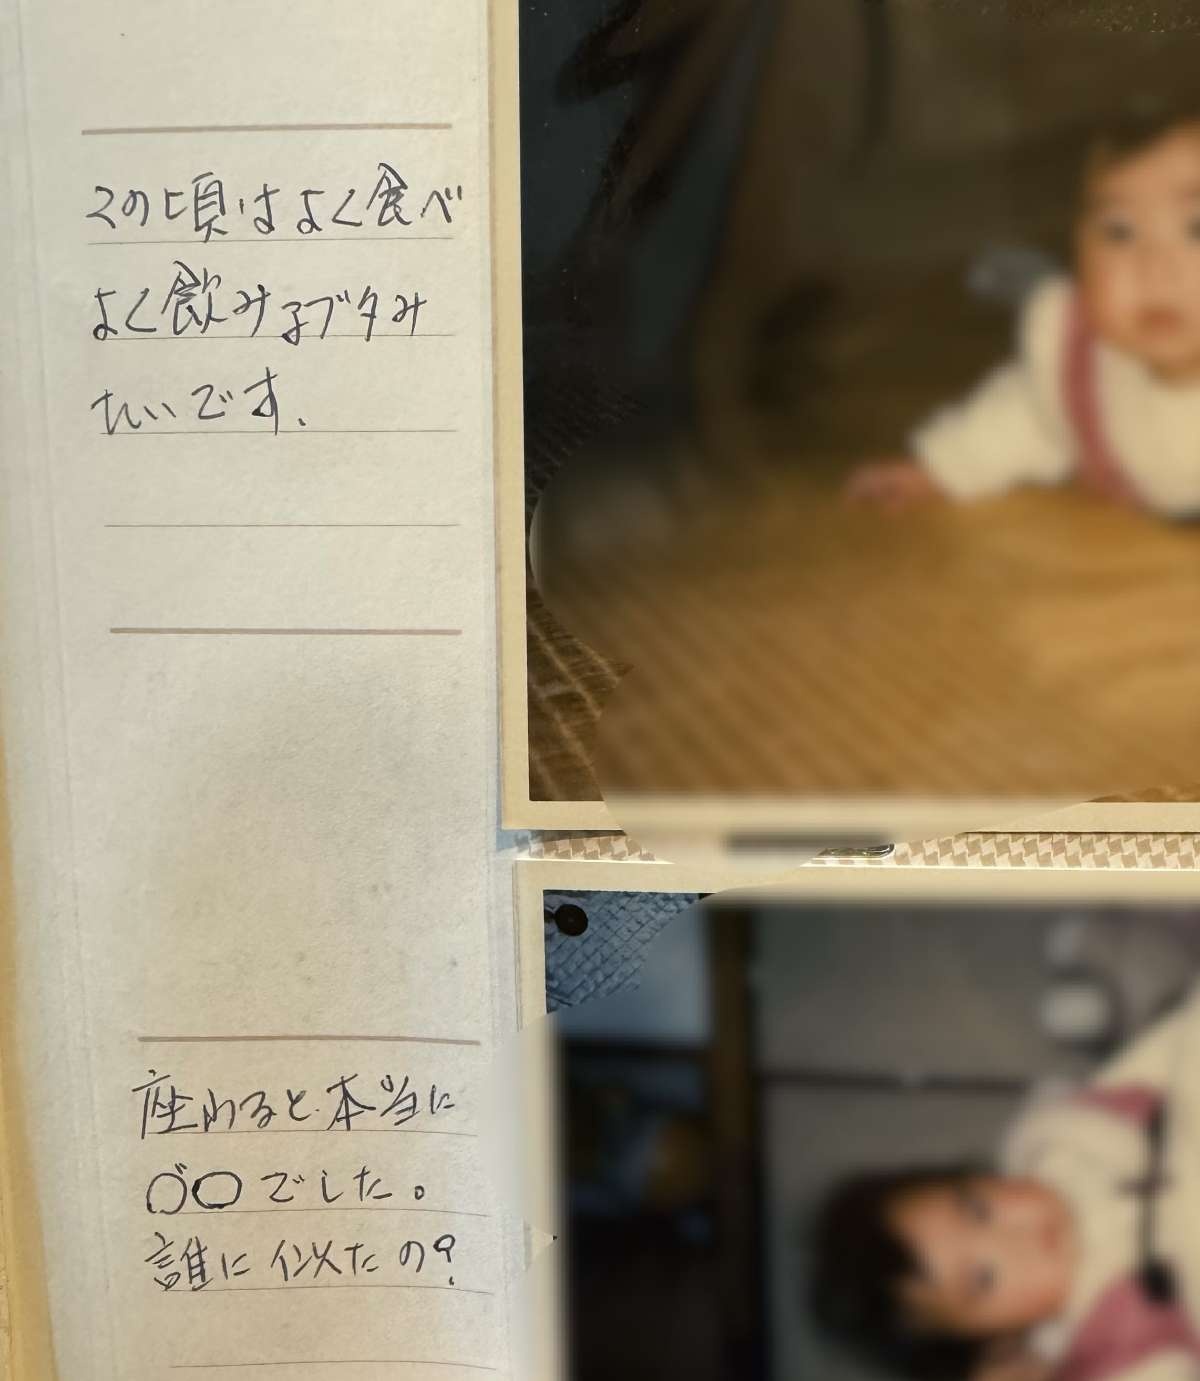 この頃はよく食べ
よく飲み子ブタみ
たいです、
座わると本当に
でした。
誰に似たの?